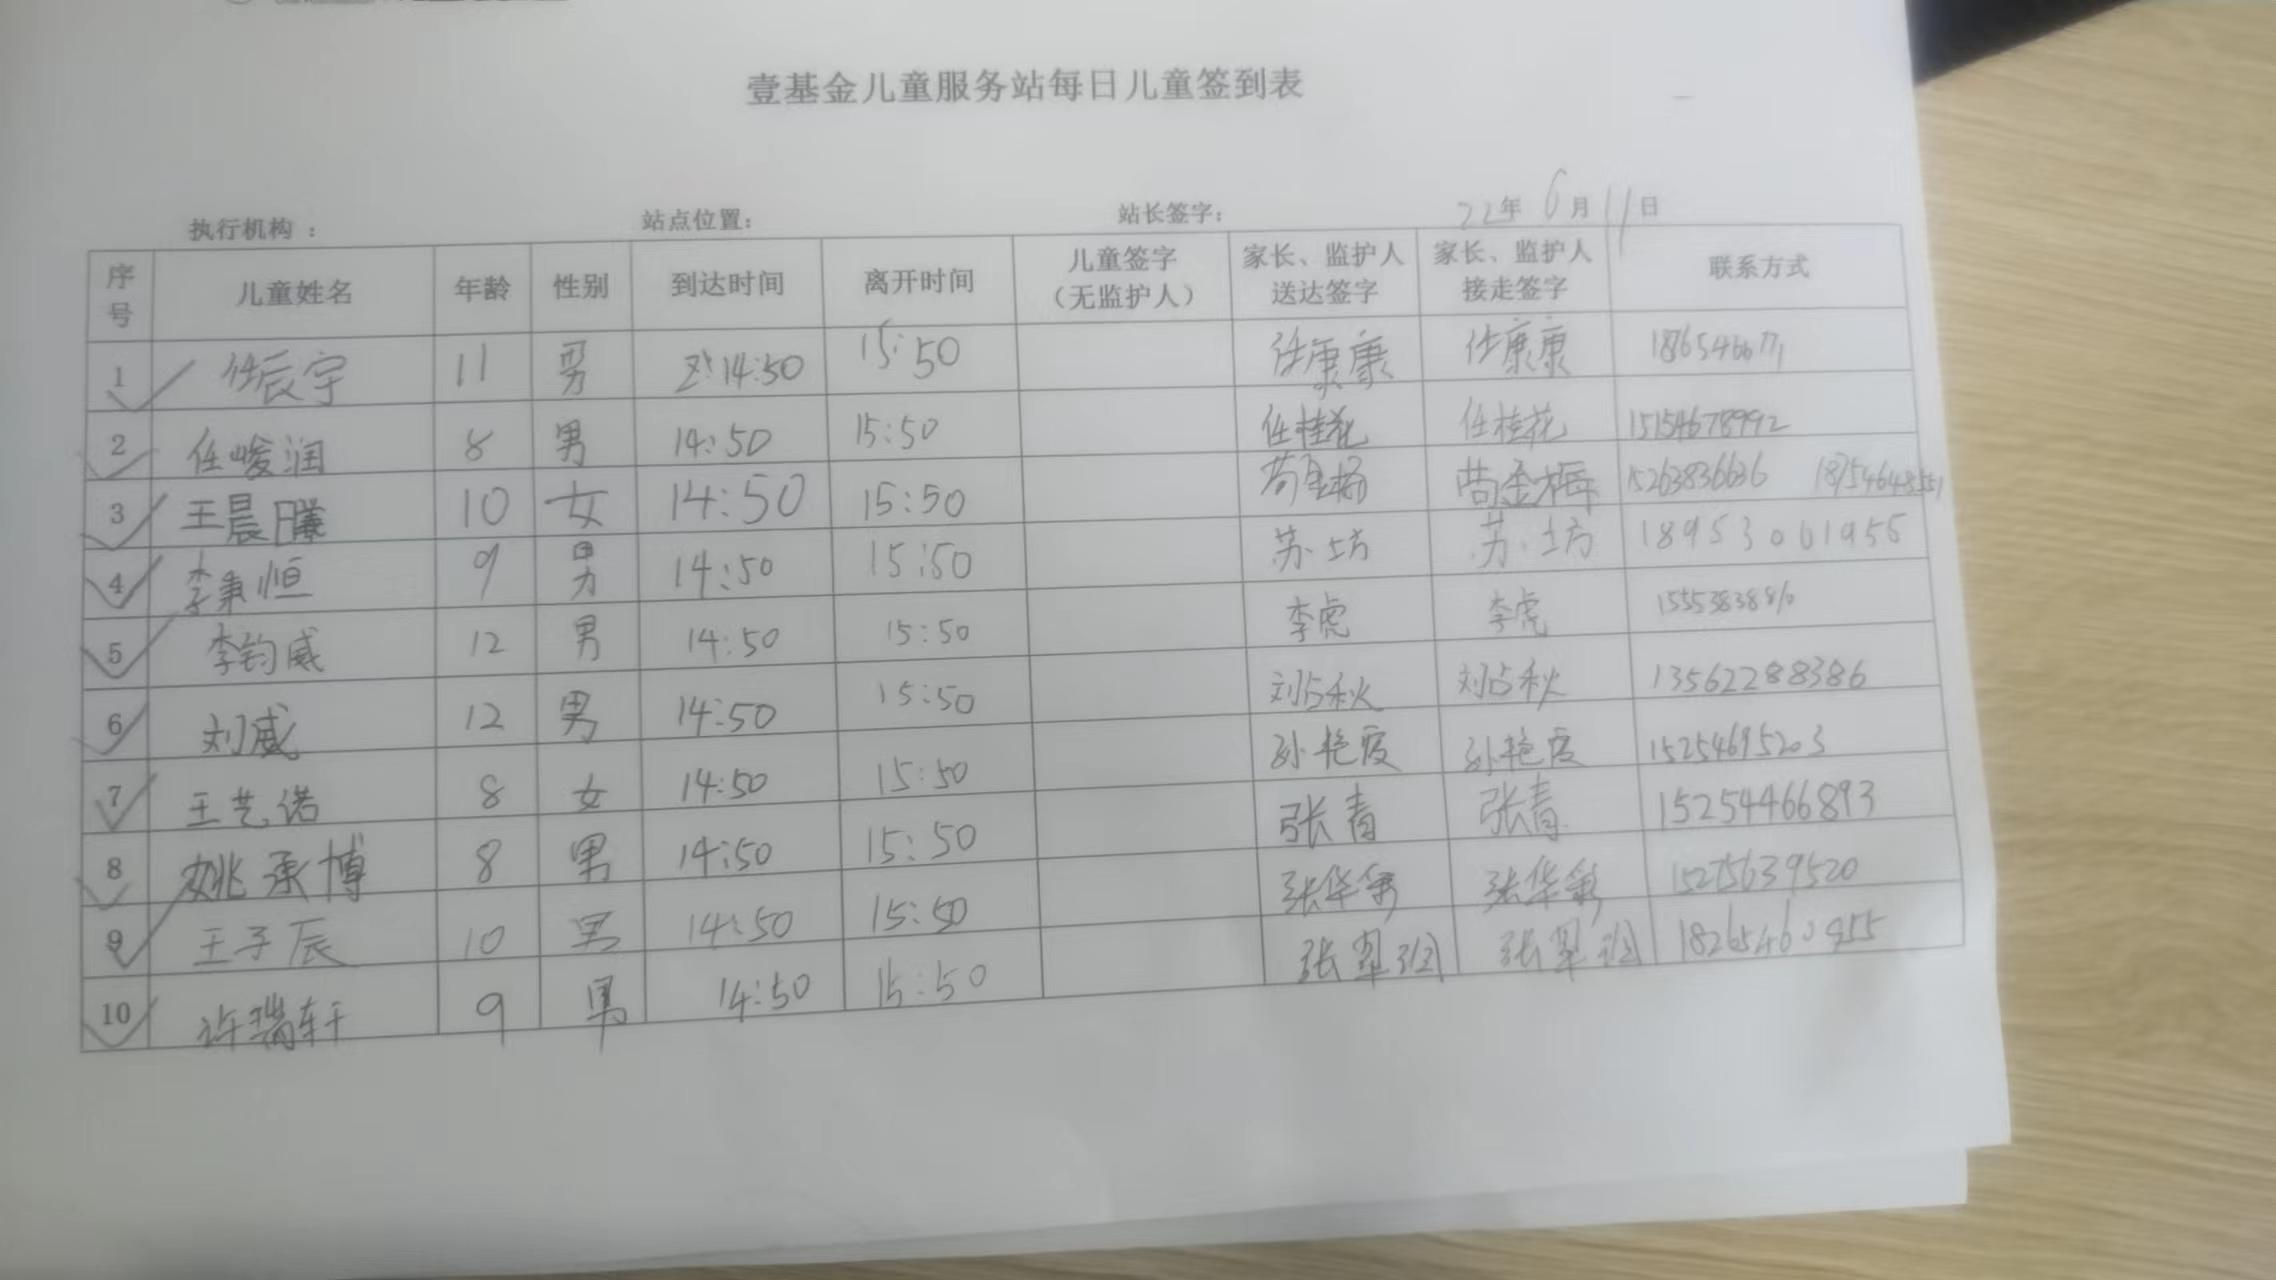 壹基金儿童服务站每日儿童签到表
执行机构 ： 站点位置： 站长签字： 22年 6月 11日
序号 儿童姓名 年龄 性别 到达时间 离开时间 儿童签字（无监护人） 家长、监护人送达签字 家长、监护人接走签字 联系方式
1 任辰宇 11 男 14:50 15:50 任康康 任康康
2 任峻润 8 男 14:50 15:50 任桂花 任桂花 15154678992
3 王晨曦 10 女 14:50 15:50 15263836636 18754648551
4 李秉恒 9 男 14:50 15:50 18953061955
5 李钧威 12 男 14:50 15:50 李虎 李虎
6 刘威 12 男 14:50 15:50 刘占秋 刘占秋 13562288386
7 王艺诺 8 女 14:50 15:50 孙艳霞 孙艳霞 15254695203
8 姚承博 8 男 14:50 15:50 张青 张青 15254466893
9 王子辰 10 男 14:50 15:50 张华彩 张华彩 15275639520
10 许瑞轩 9 男 14:50 15:50 张翠 张翠 18265460955